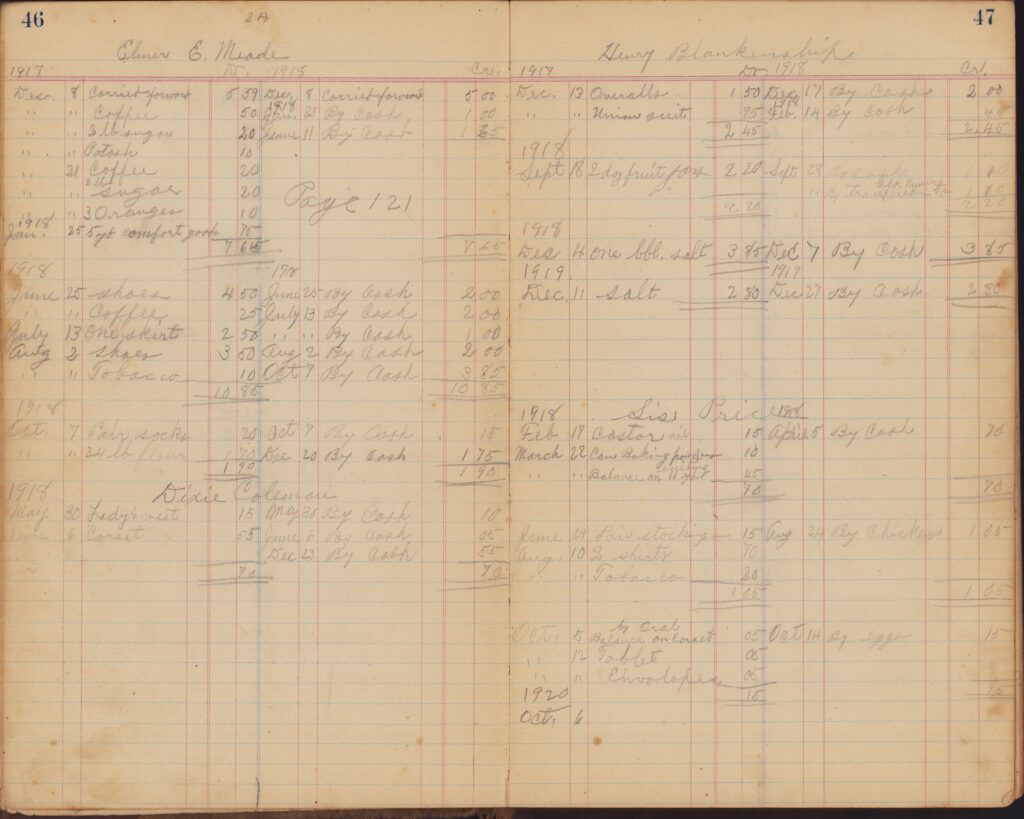 46
24
Elmer E. Meade
1917 Dr. 1918 Cr.
Dec. 8 Carried forward 5 59 Dec. 8 Carried forward 5 00
" " Coffee 50 1918 Jan. 25 By Cash 1 00
" " 2 lb sugar 20 June 11 By Cash 1 65
" " Potash 10
" 21 Coffee 20
" " 2 lb sugar 20
" " 3 Oranges 10
Page 121
1918
Jan. 25 5 yd comfort goods 75
7 65 7 65
1918 1918
June 25 shoes 4 50 June 25 By Cash 2 00
" " Coffee 25 July 13 By Cash 2 00
July 13 One skirt 2 50 " " By Cash 1 00
Aug 2 shoes 3 50 Aug 2 By Cash 2 00
" " Tobacco 10 Oct 7 By Cash 3 85
10 85 10 85
1918
Oct. 7 Pair socks 20 Oct 7 By Cash 15
" " 24 lb flour 1 70 Dec 20 By Cash 1 75
1 90 1 90
1918 Dixie Coleman
May 30 Lady's vest 15 May 30 By Cash 10
June 6 Corset 55 June 6 By Cash 05
Dec 23 By Cash 55
70 70
47
Henry Blankinship
1917 Dr 1918 Cr.
Dec. 13 Overalls 1 50 Dec 17 By Cash 2 00
" " Union suits 95 1918 Feb. 14 By Cash 45
2 45 2 45
1918
Sept 18 2 doz fruit jars 2 20 Sept 28 By cash
By transfered to
2 20 2 20
1918
Dec 4 one bbl. salt 3 85 Dec 7 By Cash 3 85
1919 1919
Dec. 11 salt 2 80 Dec 27 By Cash 2 80
1918 Sis Price 1918
Feb 18 Castor oil 15 April 5 By Cash 70
March 22 Can Baking powders 10
" " Balance on 45
70 70
June 27 Pair stockings 15 Aug 24 By Chicken 1 05
Aug. 10 2 shirts 70
" " Tobacco 20
1 05 1 05
by Oral
Oct. 5 Balance on Corset 05 Oct 14 By eggs 15
" 12 Tablet 05
" " Envolopes 05
1920 15 15
Oct. 6